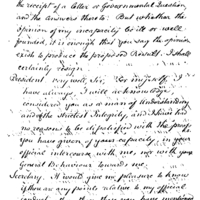 the receipt of a letter or Governmental Question,
and the answers thereto. But whether the
opinion of my incapacity be ill or well
founded, it is enough that you say the opinion
exists to produce the proposed Result. I shall
certainly resign
President very well, Sir, For myself, I
have always, I will acknowledge
considered you as a man of Understanding
and of the Strictest Integrity, and I have had
no reasons to be dissatisfied with the proofs
You have given of your capacity in your
official intercourse with me, nor with your
General Behaviour towards me.
Secretary. It would give me pleasure to know
if there are any points relative to my official
conduct other than those you have mentioned